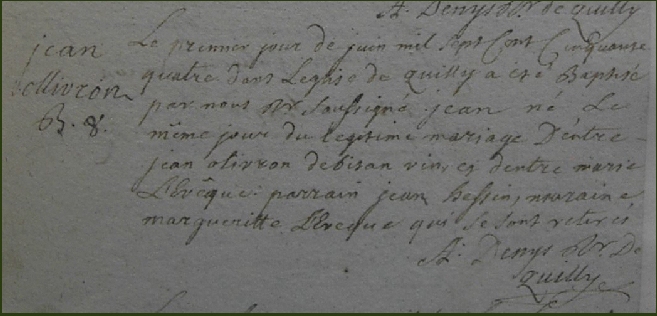 A: Denys Vr. de Quilly
jean
ollivron
B. 8.
Le premier jour de juin mil sept Cent Cinquante
quatre dans Leglise de quilly a été Baptisé
par nous Vr. Soussigné jean né Le
même jour du legitime mariage D'entre
jean olivron de et d'entre marie
L'Evêque: parrain jean maraine
margueritte L'Eveque qui se sont retirés
A: Denys Vr. De
Quilly